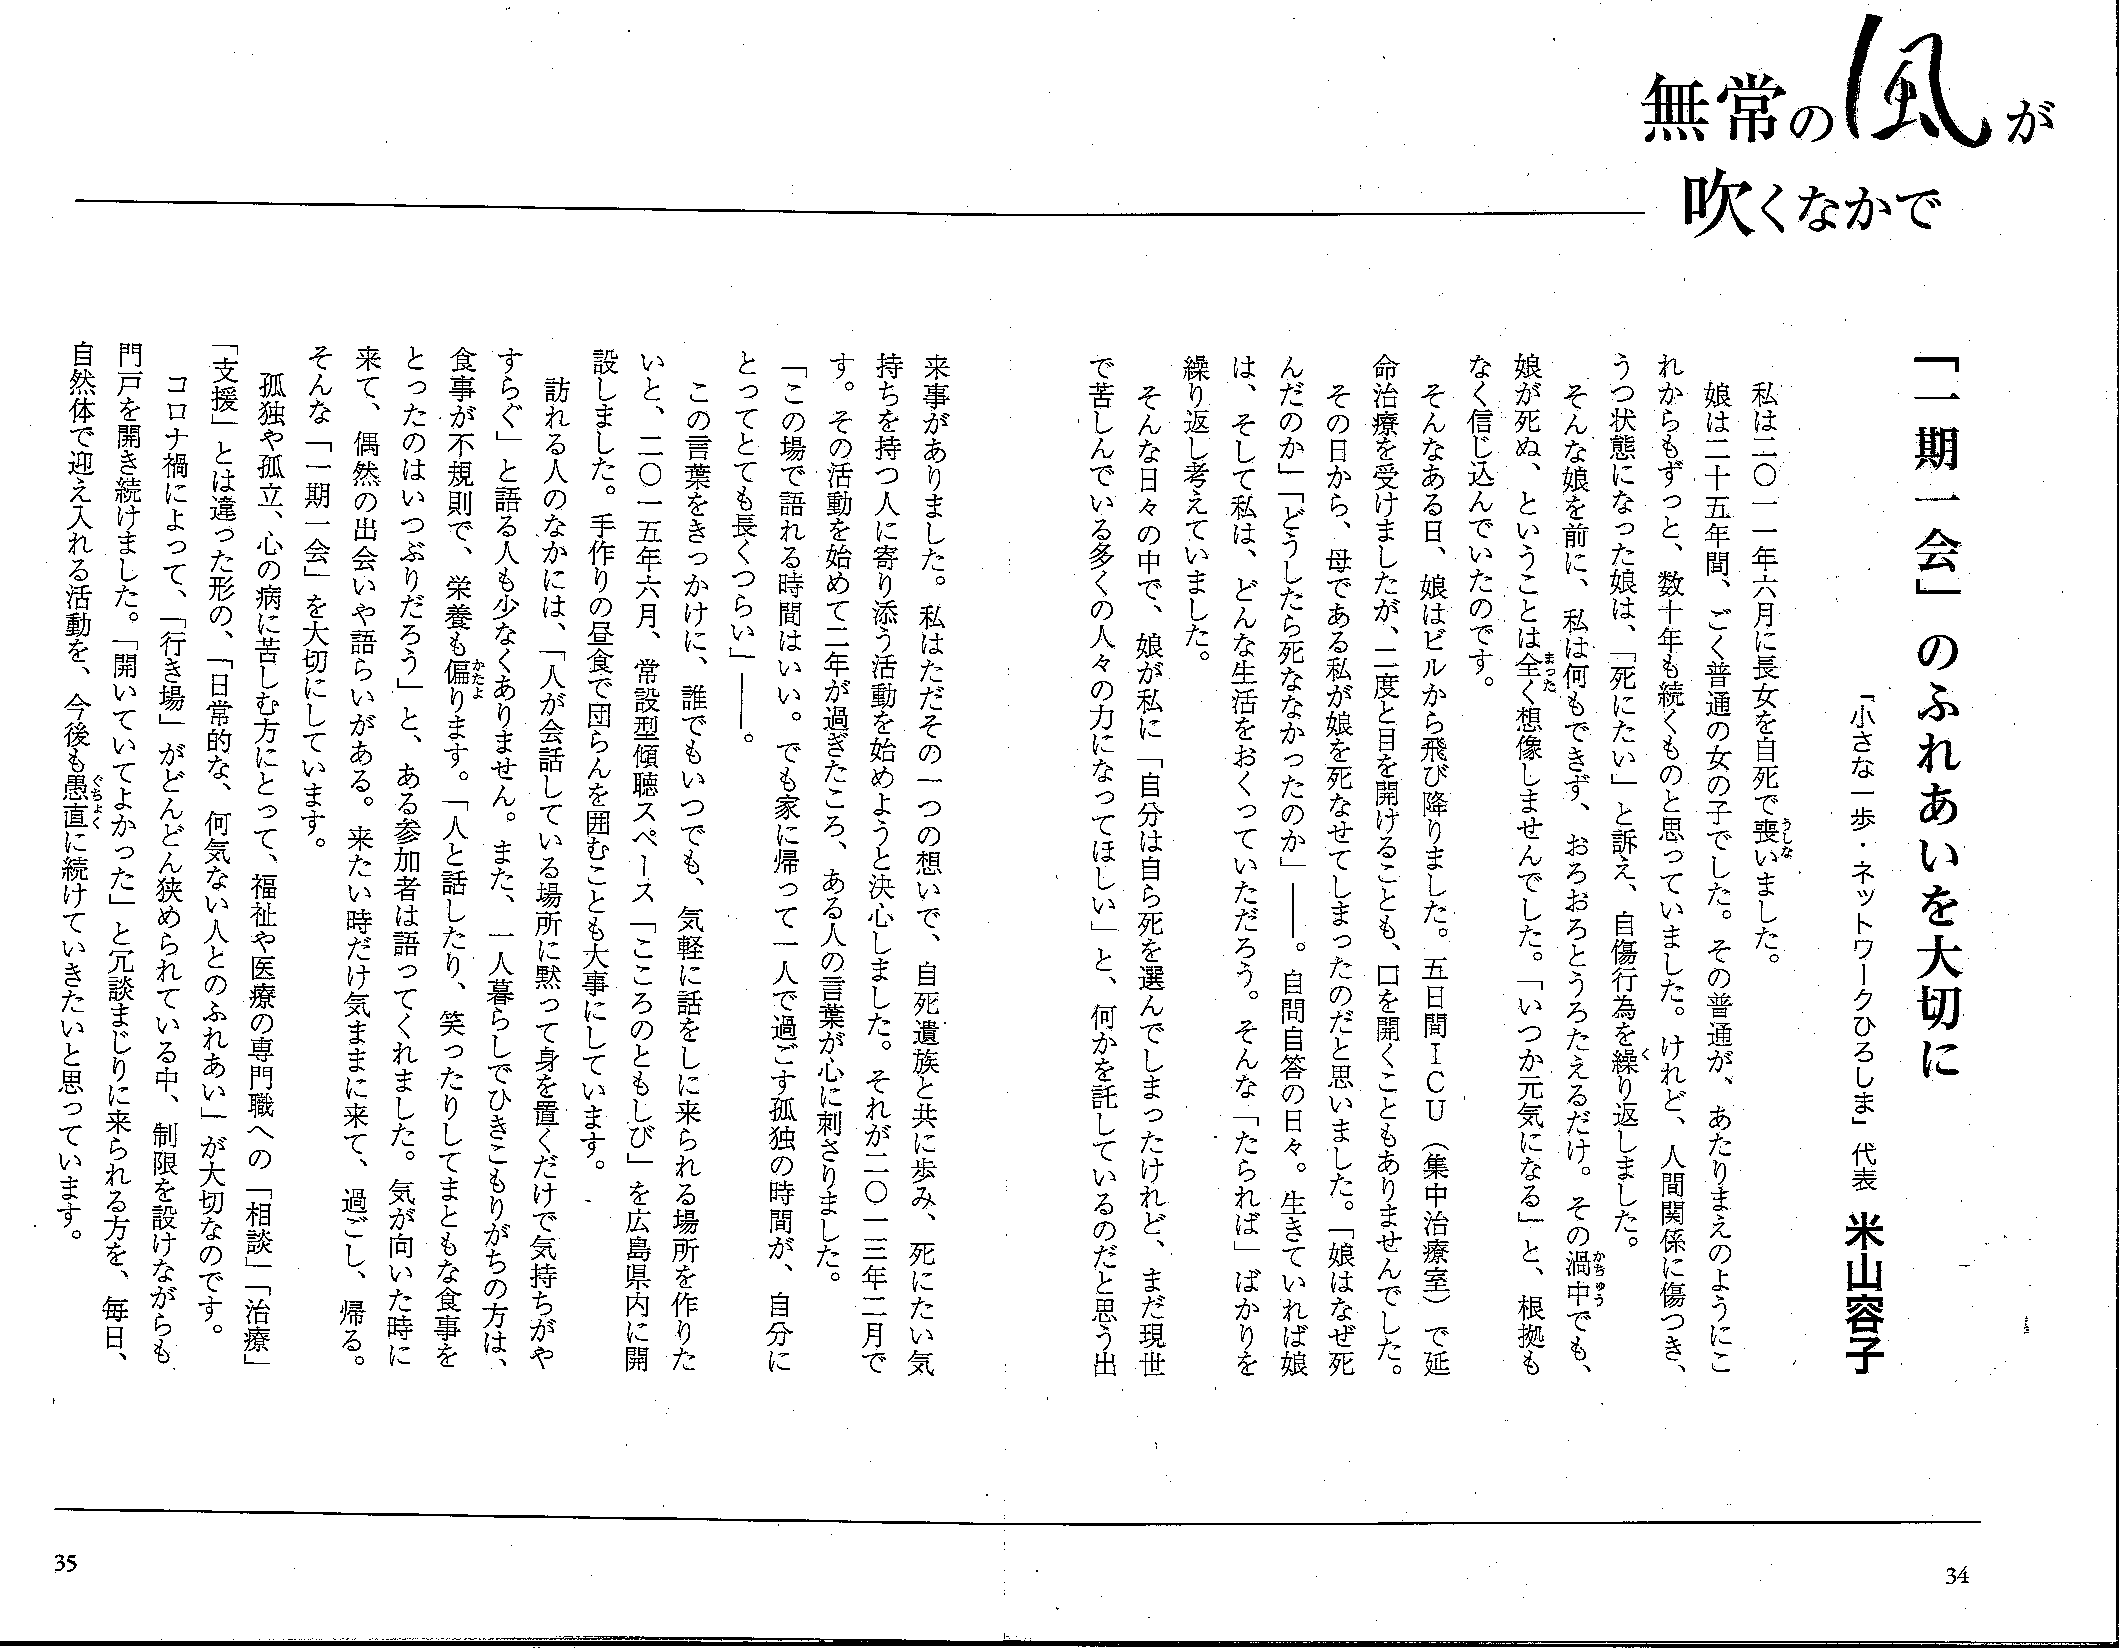 無常の風が
吹くなかで
「一期一会」のふれあいを大切に
「小さな一歩・ネットワークひろしま」代表 米山容子
私は二〇一一年六月に長女を自死で喪いました。
娘は二十五年間、ごく普通の女の子でした。その普通が、あたりまえのようにこ
れからもずっと、数十年も続くものと思っていました。けれど、人間関係に傷つき、
うつ状態になった娘は、「死にたい」と訴え、自傷行為を繰り返しました。
そんな娘を前に、私は何もできず、おろおろとうろたえるだけ。その渦中でも、
娘が死ぬ、ということは全く想像しませんでした。「いつか元気になる」と、根拠も
なく信じ込んでいたのです。
そんなある日、娘はビルから飛び降りました。五日間ＩＣＵ（集中治療室）で延
命治療を受けましたが、二度と目を開けることも、口を開くこともありませんでした。
その日から、母である私が娘を死なせてしまったのだと思いました。「娘はなぜ死
んだのか」「どうしたら死ななかったのか」――。自問自答の日々。生きていれば娘
は、そして私は、どんな生活をおくっていただろう。そんな「たられば」ばかりを
繰り返し考えていました。
そんな日々の中で、娘が私に「自分は自ら死を選んでしまったけれど、まだ現世
で苦しんでいる多くの人々の力になってほしい」と、何かを託しているのだと思う出
来事がありました。私はただその一つの想いで、自死遺族と共に歩み、死にたい気
持ちを持つ人に寄り添う活動を始めようと決心しました。それが二〇一三年二月で
す。その活動を始めて二年が過ぎたころ、ある人の言葉が心に刺さりました。
「この場で語れる時間はいい。でも家に帰って一人で過ごす孤独の時間が、自分に
とってとても長くつらい」――。
この言葉をきっかけに、誰でもいつでも、気軽に話をしに来られる場所を作りた
いと、二〇一五年六月、常設型傾聴スペース「こころのともしび」を広島県内に開
設しました。手作りの昼食で団らんを囲むことも大事にしています。
訪れる人のなかには、「人が会話している場所に黙って身を置くだけで気持ちがや
すらぐ」と語る人も少なくありません。また、一人暮らしでひきこもりがちの方は、
食事が不規則で、栄養も偏ります。「人と話したり、笑ったりしてまともな食事を
とったのはいつぶりだろう」と、ある参加者は語ってくれました。気が向いた時に
来て、偶然の出会いや語らいがある。来たい時だけ気ままに来て、過ごし、帰る。
そんな「一期一会」を大切にしています。
孤独や孤立、心の病に苦しむ方にとって、福祉や医療の専門職への「相談」「治療」
「支援」とは違った形の、「日常的な、何気ない人とのふれあい」が大切なのです。
コロナ禍によって、「行き場」がどんどん狭められている中、制限を設けながらも
門戸を開き続けました。「開いていてよかった」と冗談まじりに来られる方を、毎日、
自然体で迎え入れる活動を、今後も愚直に続けていきたいと思っています。
34
35